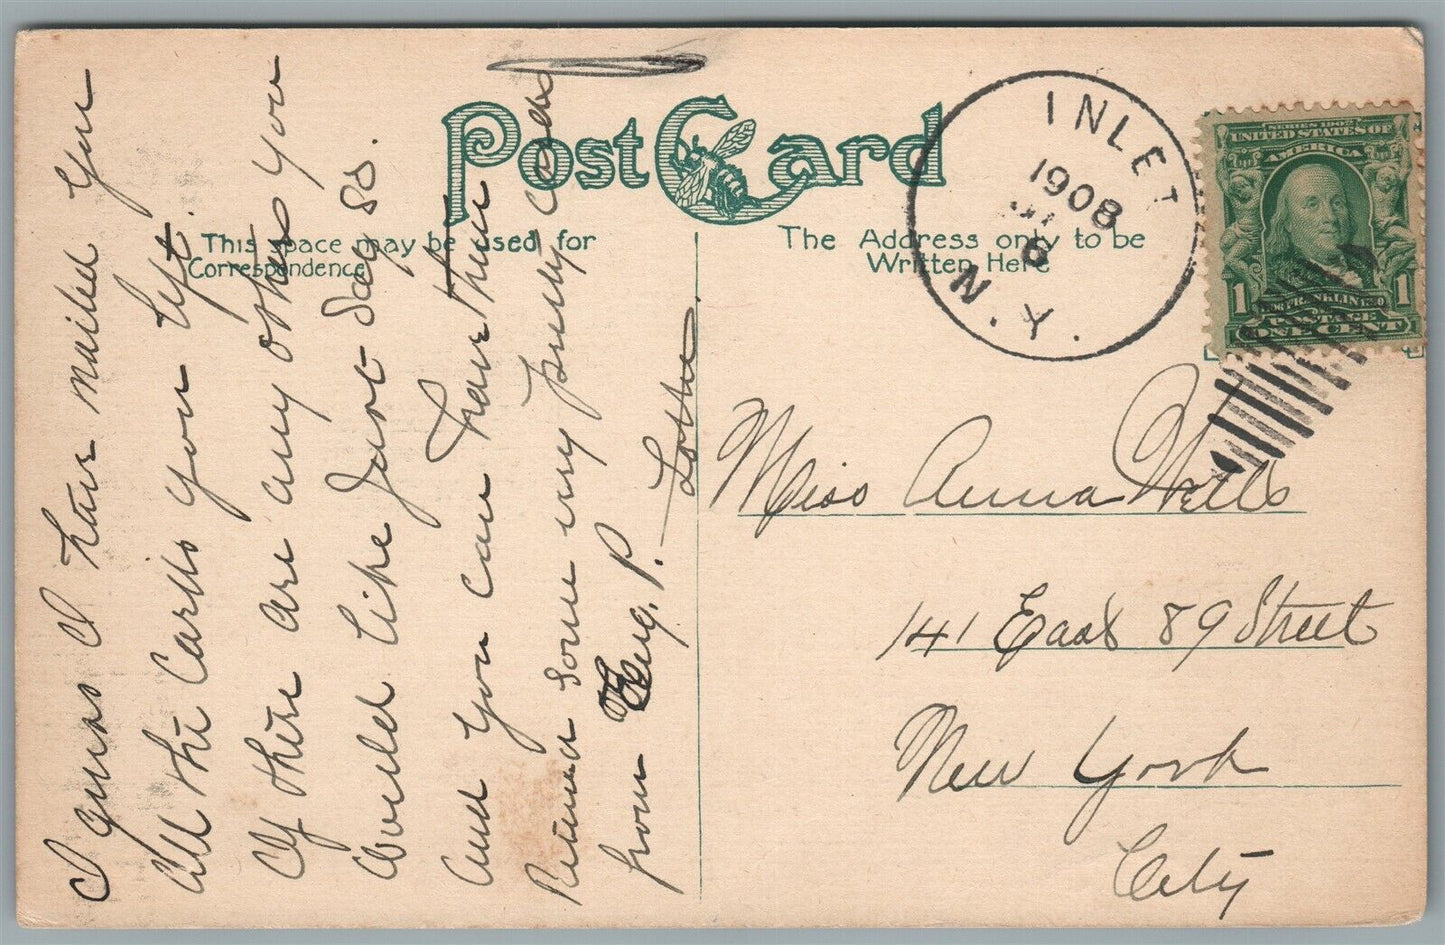 Post Card
This space may be used for
Correspondence
The Address only to be
Written Here
INLET
1908
6
N.Y.
SERIES 1902
UNITED STATES OF
AMERICA
1 1
FRANKLIN
POSTAGE
ONE CENT
I guess I have mailed you
all the Cards you left.
If there are any others you
would like just say so.
And you can have them
Rec'd some very pretty cards
from Eug. P. Lottie.
Miss Anna Wells
141 East 89 Street
New York
City